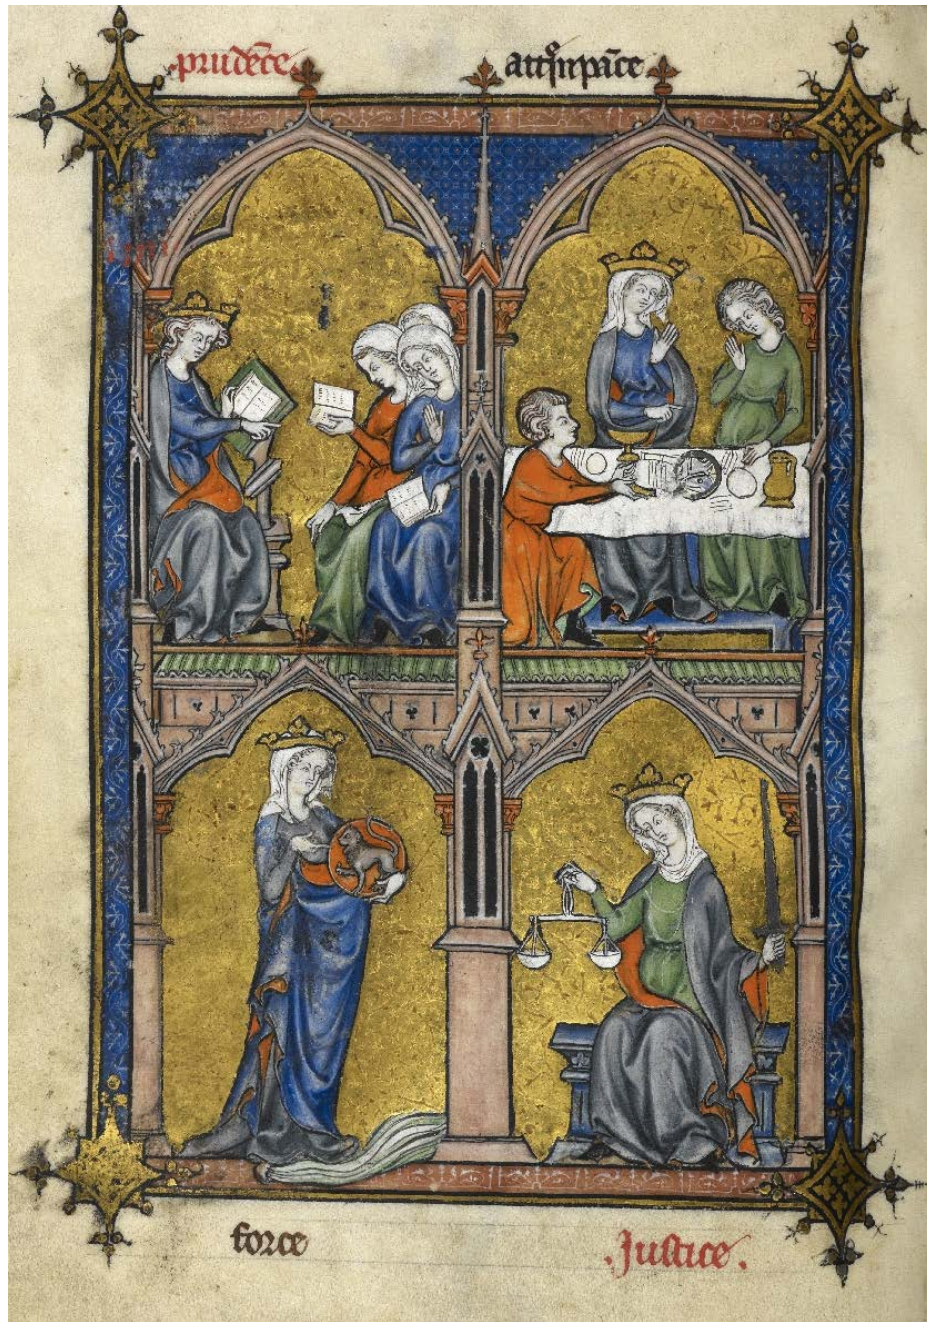 .prudēce. att'mpāce
force .Justice.